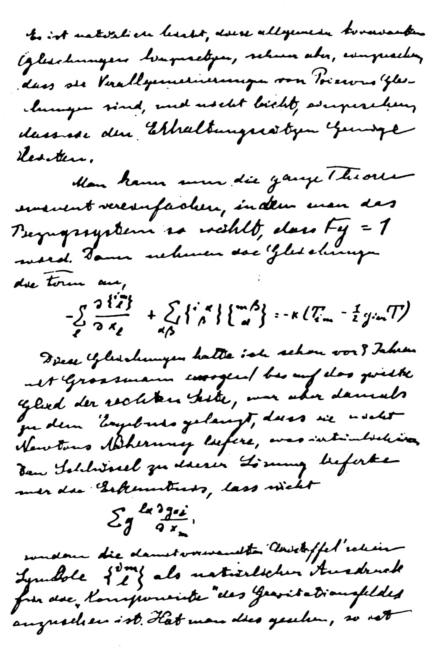 Es ist natürlich leicht, diese allgemein kovarianten
Gleichungen hinzusetzen, schwer aber, einzusehen,
dass sie Verallgemeinerungen von Poissons Glei-
chungen sind, und nicht leicht, einzusehen,
dass sie den Erhaltungssätzen Genüge
leisten.
Man kann nun die ganze Theorie
eminent vereinfachen, indem man das
Bezugssystem so wählt, dass √-g = 1
wird. Dann nehmen die Gleichungen
die Form an,
-∑_l ∂{im l}/∂x_l + ∑_αβ {iα β}{mβ α} = -κ(T_im - 1/2 g_im T)
Diese Gleichungen hatte ich schon vor 3 Jahren
mit Grossmann erwogen bis auf das zweite
Glied der rechten Seite, war aber damals
zu dem Ergebnis gelangt, dass sie nicht
Newtons Näherung liefere, was irrtümlich war.
Den Schlüssel zu dieser Lösung lieferte
mir die Erkenntnis, dass nicht
∑ g^lα ∂g_αi/∂x_m,
sondern die damit verwandten Christoffel'schen
Symbole {im l} als natürlicher Ausdruck
für die „Komponente" des Gravitationsfeldes
anzusehen ist. Hat man dies gesehen, so ist